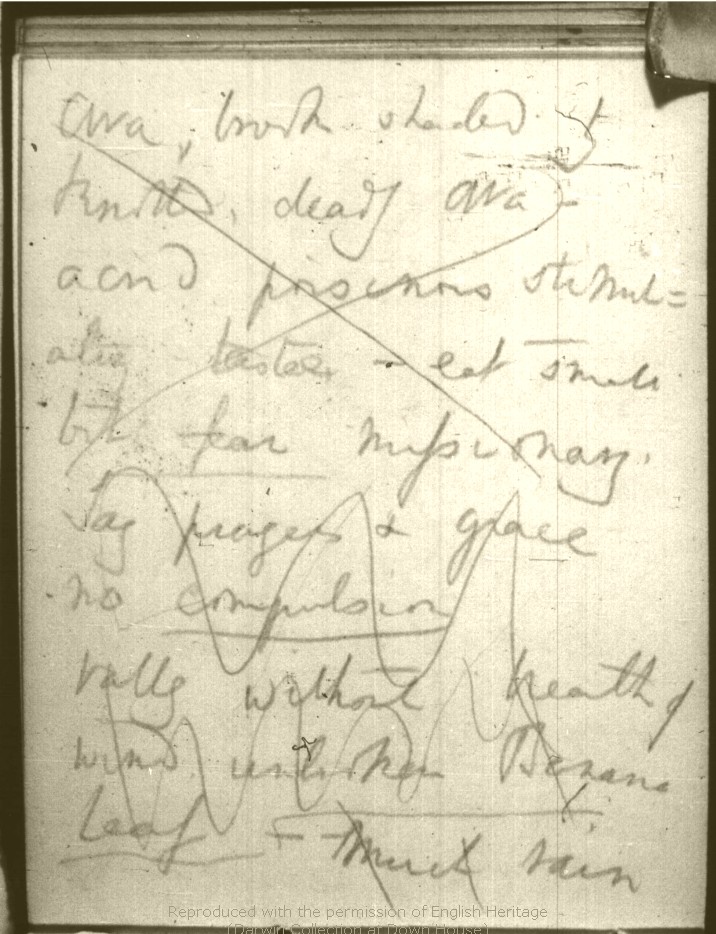 ava, brook shaded by
knotted, deadly ava –
acrid poisonous stimul=
ating taste – eat small
bit fear missionary.
Say prayers & grace
no compulsion
valley without breath of
wind unbroken Banana
leaf – Much rain
Reproduced with the permission of English Heritage
(Darwin Collection at Down House)